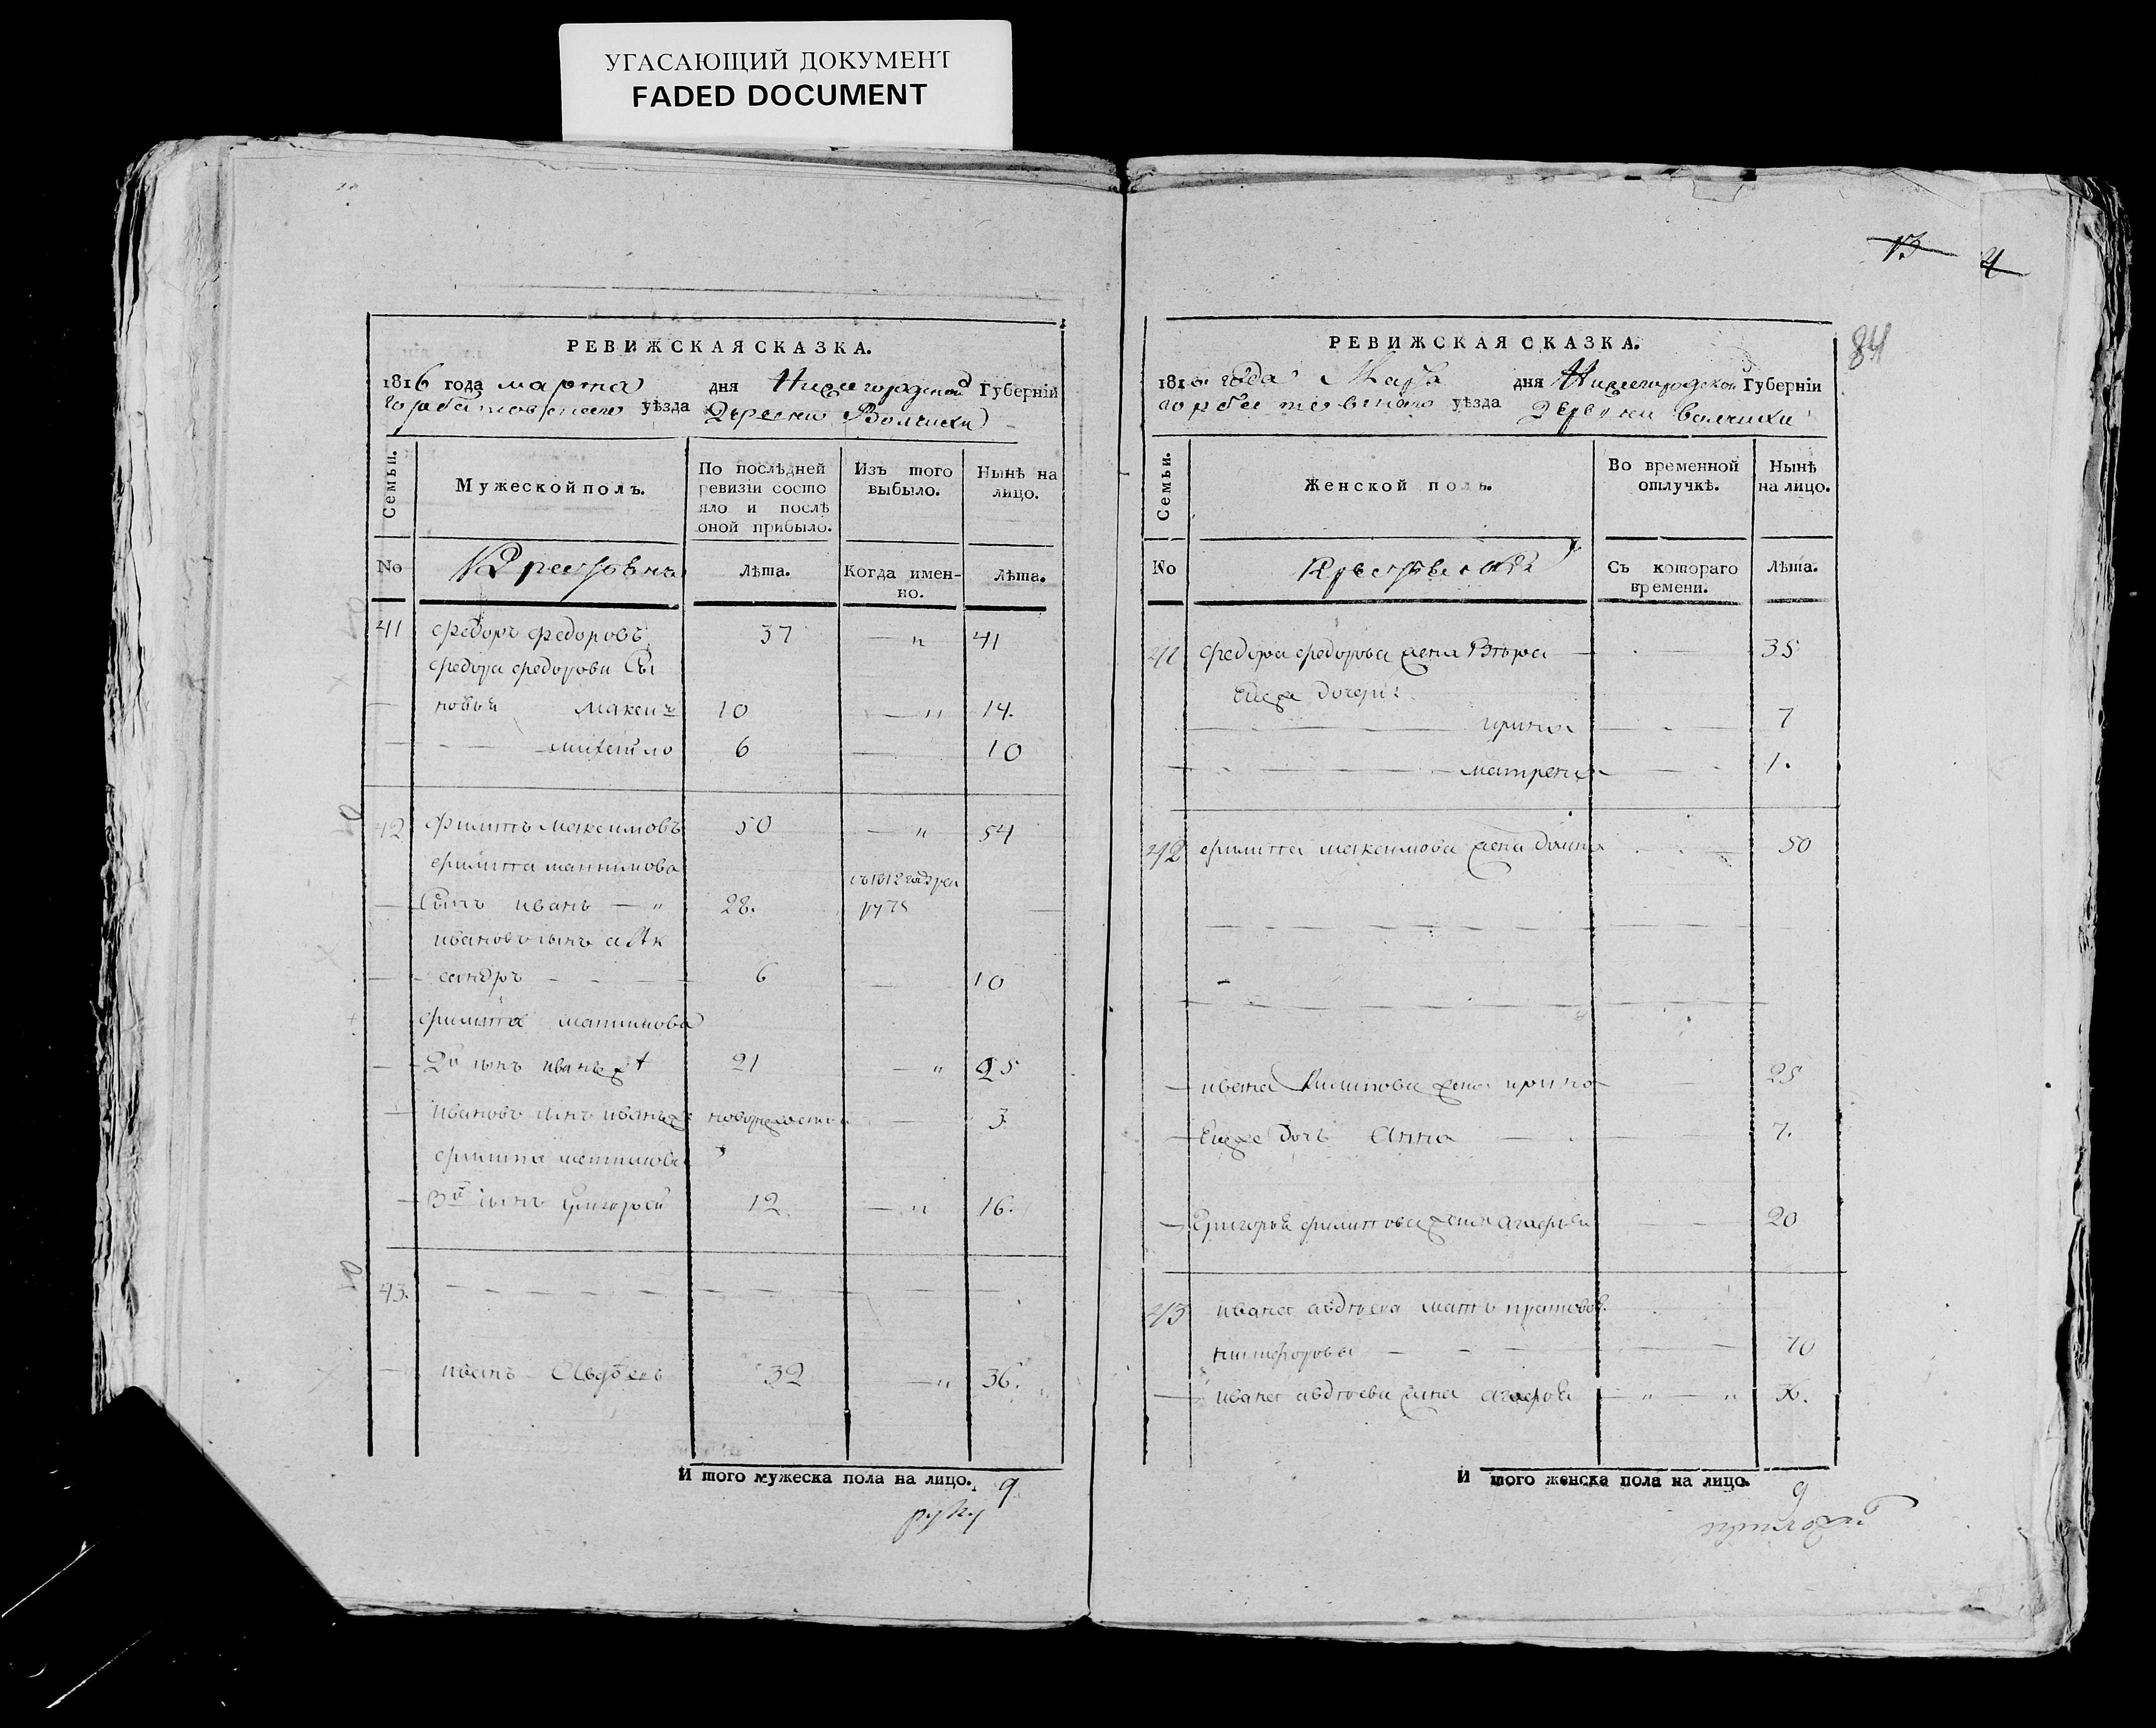 УГАСАЮЩИЙ ДОКУМЕНТ
FADED DOCUMENT
РЕВИЖСКАЯ СКАЗКА.
1816 года марта дня Нижегородской Губернїи
горбатовскаго уѣзда Деревни Волчихи
Семьи.
Мужеской полъ.
По послѣдней ревизїи состояло и послѣ оной прибыло.
Изъ того выбыло.
Нынѣ на лицо.
No
Лѣта.
Когда имен-но.
Лѣта.
41 федоръ федоровъ 37 — " 41
федора федорова Сы
новья максимъ 10 — " 14.
михайло 6 — " 10
42 филипъ максимовъ 50 — " 54
филипа максимова
Сынъ иванъ — " 28.
ивановъ сынъ алек
сандръ 6 10
филипа максимова
2й сынъ иванъ 21 — " 25
ивановъ сынъ иванъ 3
филипа максимова
3й сынъ григорей 12. — " 16.
43.
иванъ Авдѣевъ 32 — " 36.
И того мужеска пола на лицо. 9
руку
13 4
84
РЕВИЖСКАЯ СКАЗКА.
1816 года Марта дня Нижегородской Губернїи
горбатовскаго уѣзда Деревни волчихи
Семьи.
Женской полъ.
Во временной отлучкѣ.
Нынѣ на лицо.
No
Съ котораго времени.
Лѣта.
41 федора федорова жена 35
Ево же дочери:
ирина 7
матрена 1.
42 филипа максимова жена 50
ивана филипова жена ирина 25
Ево же дочь Анна 7.
григорья филипова жена агафья 20
43 ивана авдѣева мать
70
ивана авдѣева жена агафья " — " 36.
И того женска пола на лицо. 9
приложилъ